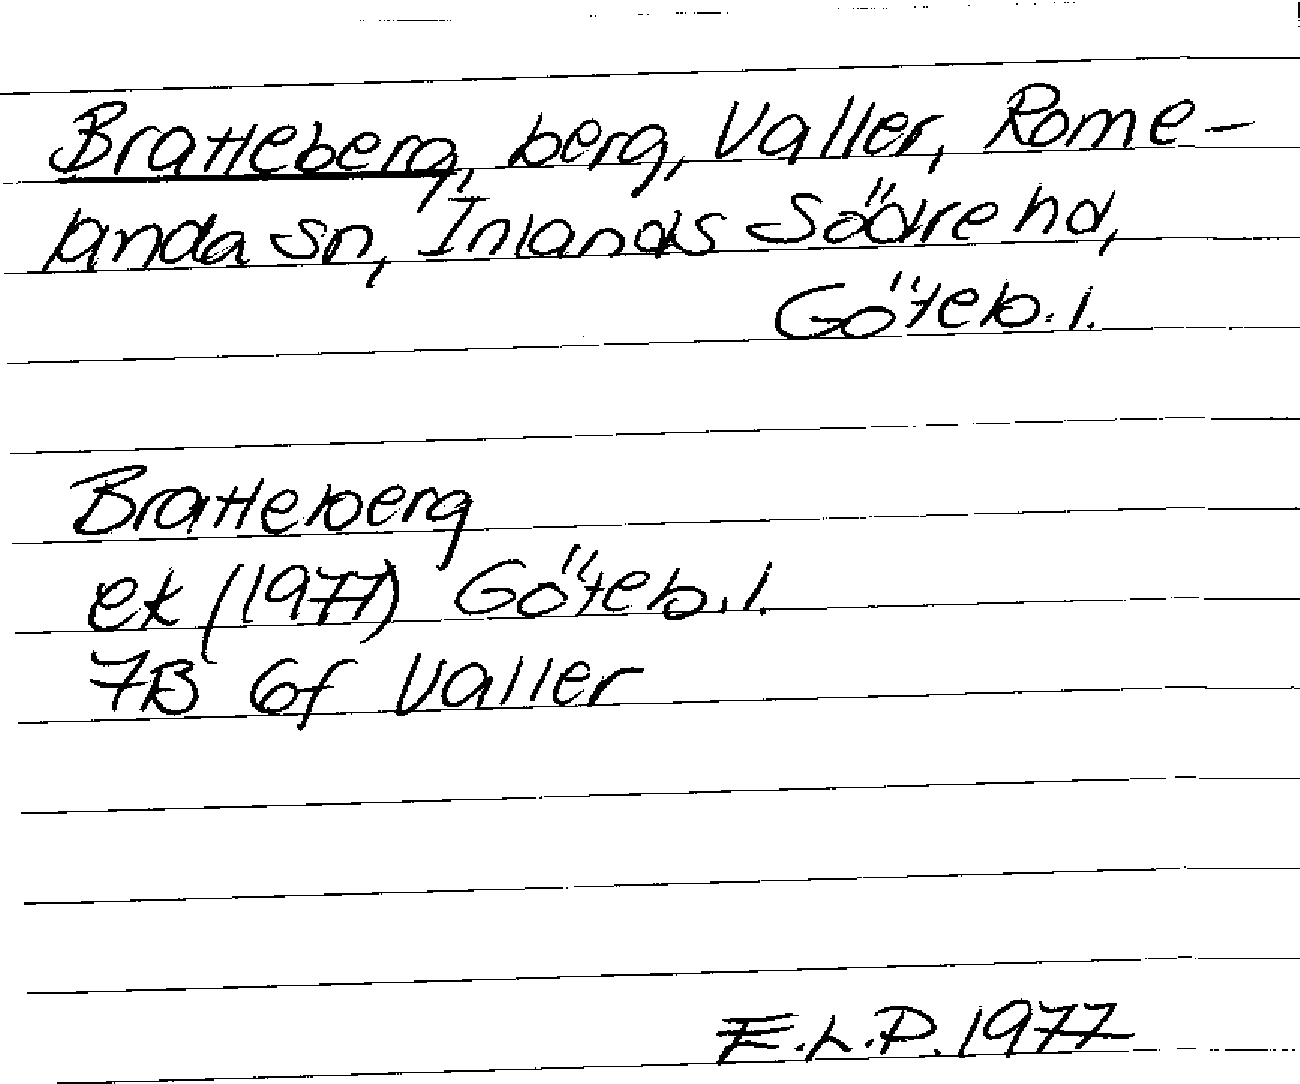 Bratteberg, berg, Valler, Rome-
landa sn, Inlands Södre hd,
Göteb. l.
Bratteberg
ek (1977) Göteb. l.
7B 6f Valler
E.L.P. 1977